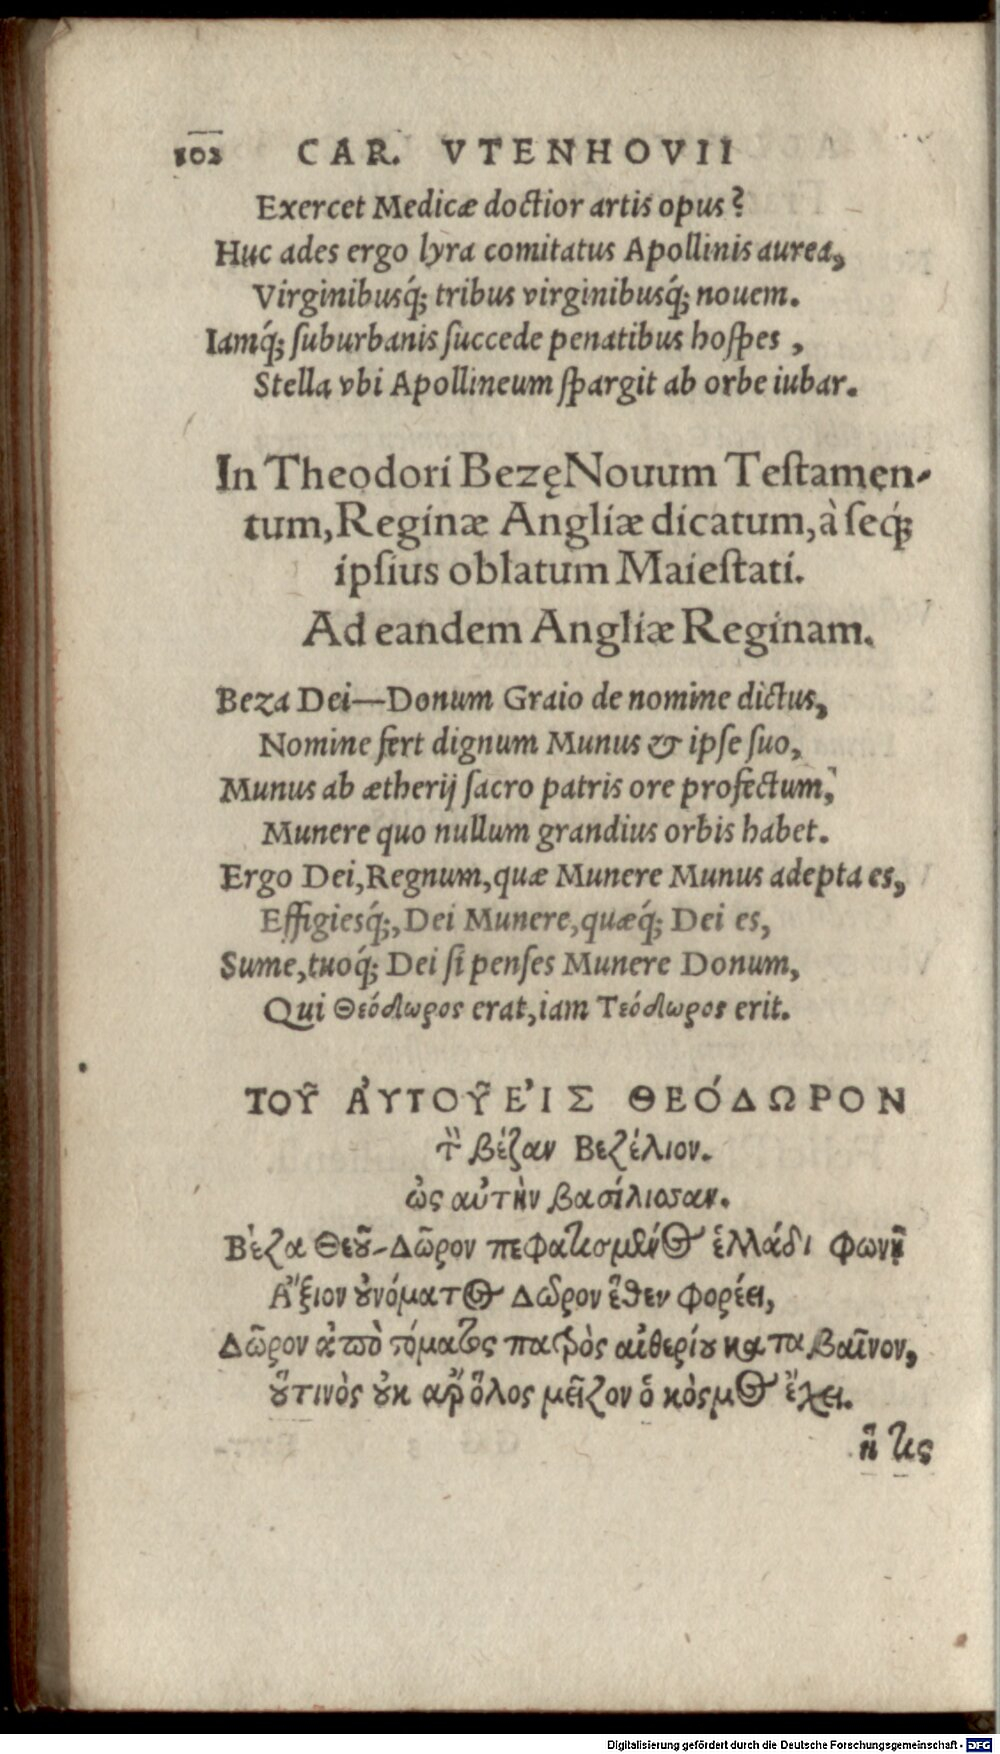 102 CAR. VTENHOVII
Exercet Medicæ doctior artis opus?
Huc ades ergo lyra comitatus Apollinis aurea,
Virginibusq́; tribus virginibusq́; nouem.
Iamq́; ſuburbanis ſuccede penatibus hoſpes ,
Stella vbi Apollineum ſpargit ab orbe iubar.
In Theodori Bezę Nouum Teſtamen-
tum, Reginæ Angliæ dicatum, à ſeq́;
ipſius oblatum Maieſtati.
Ad eandem Angliæ Reginam.
Beza Dei—Donum Graio de nomine dictus,
Nomine fert dignum Munus & ipſe ſuo,
Munus ab ætherij ſacro patris ore profectum,
Munere quo nullum grandius orbis habet.
Ergo Dei, Regnum, quæ Munere Munus adepta es,
Effigiesq́;, Dei Munere, quæq́; Dei es,
Sume, tuoq́; Dei ſi penſes Munere Donum,
Qui Θεόδωρος erat, iam Τεόδωρος erit.
ΤΟΥ͂ ἈΥΤΟΥ͂ ΕἸΣ ΘΕΌΔΩΡΟΝ
τ̀ βέζαν Βεζέλιον.
ὡς αὐτὴν βασίλιοσαν.
Βέζα Θεοῦ-Δῶρον πεφατισμένος ἑλλάδι φωνῇ
Ἄξιον οὐνόματος Δῶρον ἕθεν φορέει,
Δῶρον ἀπὸ στόματος πατρὸς αἰθερίου καταβαῖνον,
οὗτινὸς οὐκ αῤ ὅλος μεῖζον ὁ κὸσμος ἔχει.
ἥ τις
Digitalisierung gefördert durch die Deutsche Forschungsgemeinschaft - DFG